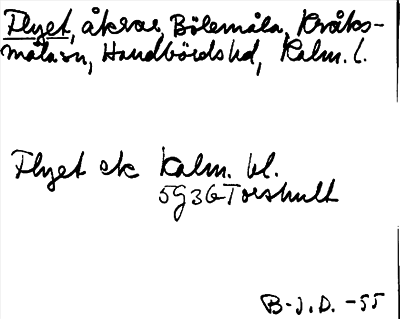 Flyet, åkrar, Bölemåla, Kråks-
måla sn, Handbörds hd, Kalm. l.
Flyet ek Kalm. bl.
5G3G Torshult
B-J.D. -55